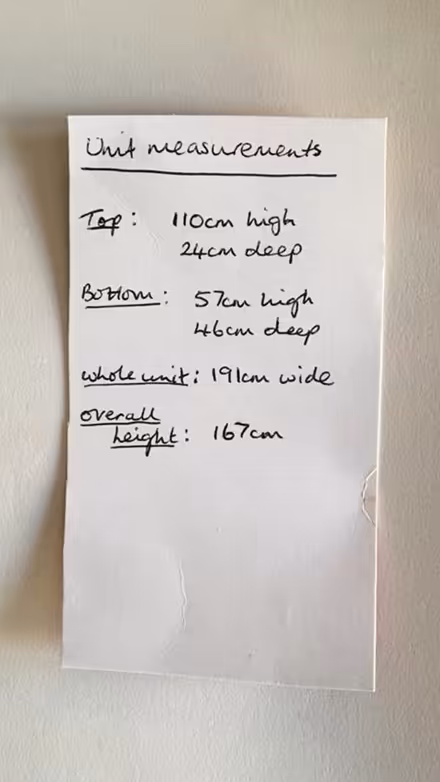 Unit measurements
Top: 110cm high
24cm deep
Bottom: 57cm high
46cm deep
whole unit: 191cm wide
overall
height: 167cm